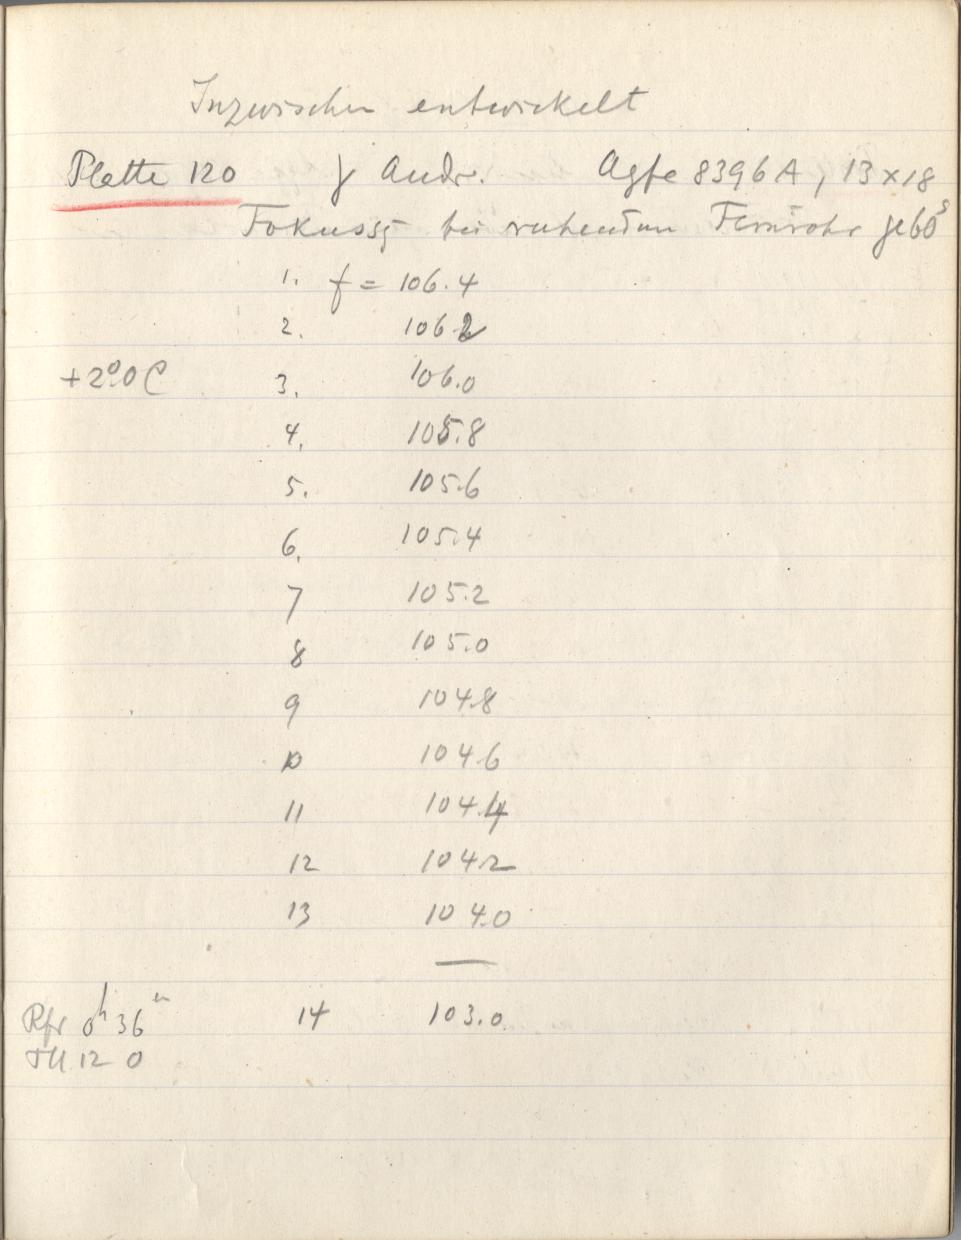 Inzwischen entwickelt
Platte 120 γ Andr. Agfa 8396A, 13×18
Fokussg bei ruhendem Fernrohr je 60ˢ
1. f = 106.4
2. 106.2
+2°.0 C 3. 106.0
4. 105.8
5. 105.6
6. 105.4
7 105.2
8 105.0
9 104.8
10 104.6
11 104.4
12 104.2
13 104.0
Rfr 0ʰ 36ᵐ 14 103.0
12 0